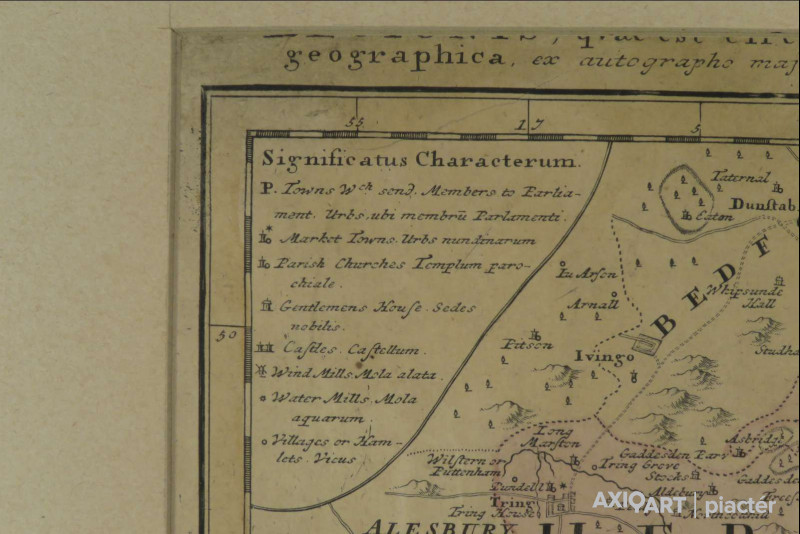 geographica, ex autographo maj
55
17
5
Significatus Characterum.
P. Towns Wch send. Members to Parlia-
ment. Urbs, ubi membrū Parlamenti
Market Towns. Urbs nundinarum
Parish Churches Templum paro-
chiale.
Gentlemens House. Sedes
nobilis.
Castles. Castellum.
Wind Mills. Mola alata.
Water Mills. Mola
aquarum.
Villages or Ham-
lets. Vicus
50
Taternal
Dunstab
Eaton
BEDFO
Whipsunde
Hall
Iu Arson
Arnall
Pitson
Ivingo
Studha
Long
Marston
Asbridge
Gaddesden Parv
Wilstern or
Puttenham
Tring Grove
Stocks
Gaddesde
Tring
Tring House
Aldebury
ALESBURY
HER
AXIOART | piactér